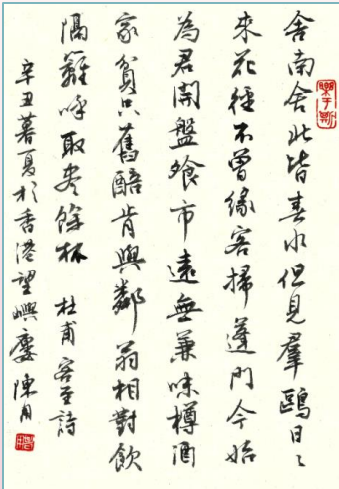 舍南舍北皆春水但見羣鷗日〻
來花徑不曾緣客掃蓬門今始
為君開盤飧市遠無兼味樽酒
家貧只舊醅肯與鄰翁相對飲
隔籬呼取盡餘杯 杜甫 客至詩
辛丑暮夏於香港望嶼廔 陳用